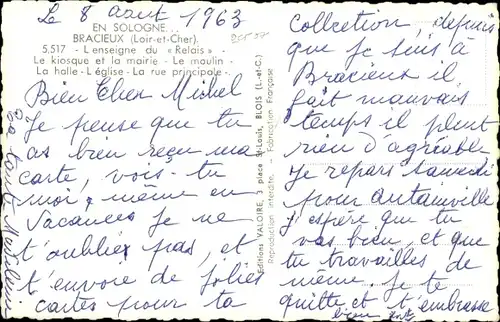 Le 8 août 1963
EN SOLOGNE...
BRACIEUX (Loir-et-Cher)
5.517 - L enseigne du « Relais » -
Le kiosque et la mairie - Le moulin -
La halle - L église - La rue principale -
Bien Cher Michel
Je pense que tu
as bien reçu ma
carte, vois-tu
moi même en
Vacances je ne
t'oublie pas, et
t'envoie de jolies
cartes pour ta
collection depuis
que je suis à
Bracieux il
fait mauvais
temps il pleut
rien d'agréable
je repars samedi
pour autainville
j'espère que tu
vas bien, et que
tu travailles de
même. je te
quitte et t'embrasse
bien fort
Ta tante
Editions VALOIRE, 3 place St-Louis, BLOIS (L.-et-C.)
Reproduction interdite. - Fabrication Française